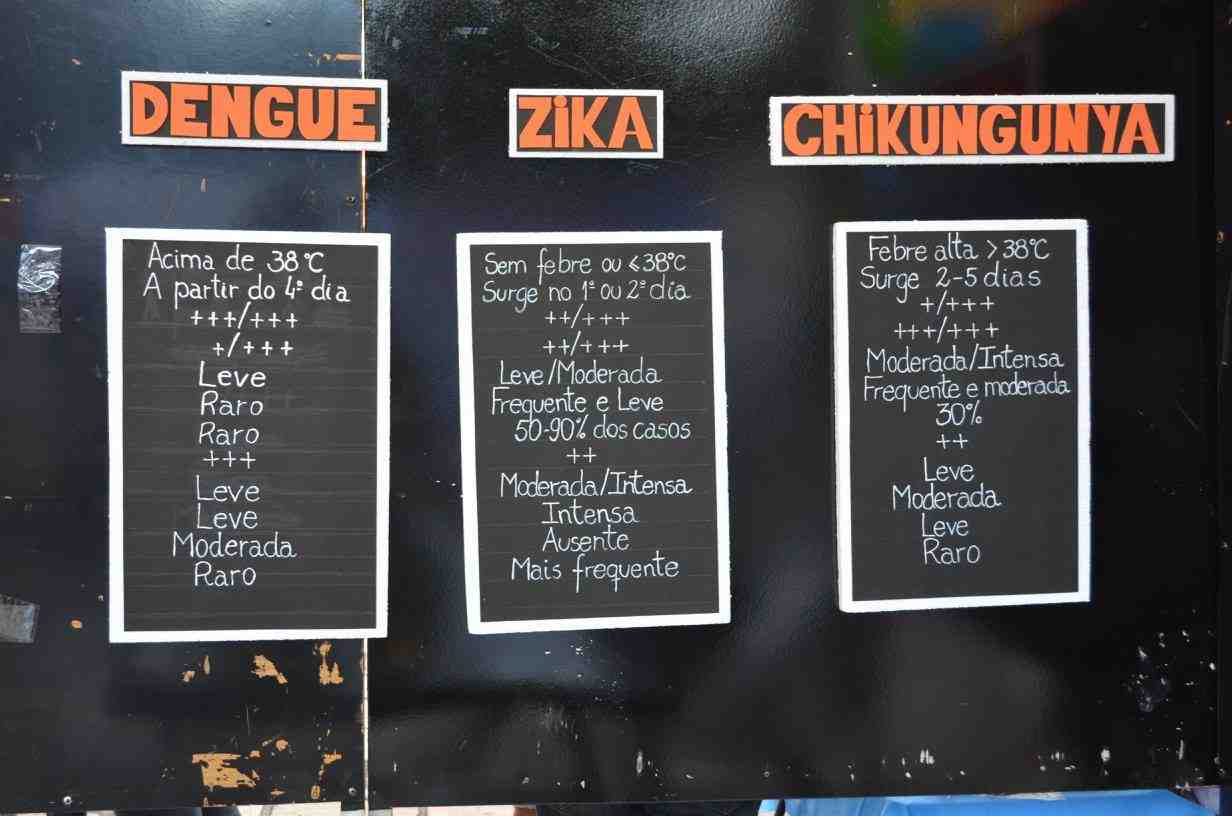 DENGUE
Acima de 38ºC
A partir do 4º dia
+++/+++
+/+++
Leve
Raro
Raro
+++
Leve
Leve
Moderada
Raro
ZiKA
Sem febre ou ≤38ºC
Surge no 1º ou 2º dia
++/+++
++/+++
Leve/Moderada
Frequente e Leve
50-90% dos casos
++
Moderada/Intensa
Intensa
Ausente
Mais frequente
CHiKUNGUNYA
Febre alta >38ºC
Surge 2-5 dias
+/+++
+++/+++
Moderada/Intensa
Frequente e moderada
30%
++
Leve
Moderada
Leve
Raro